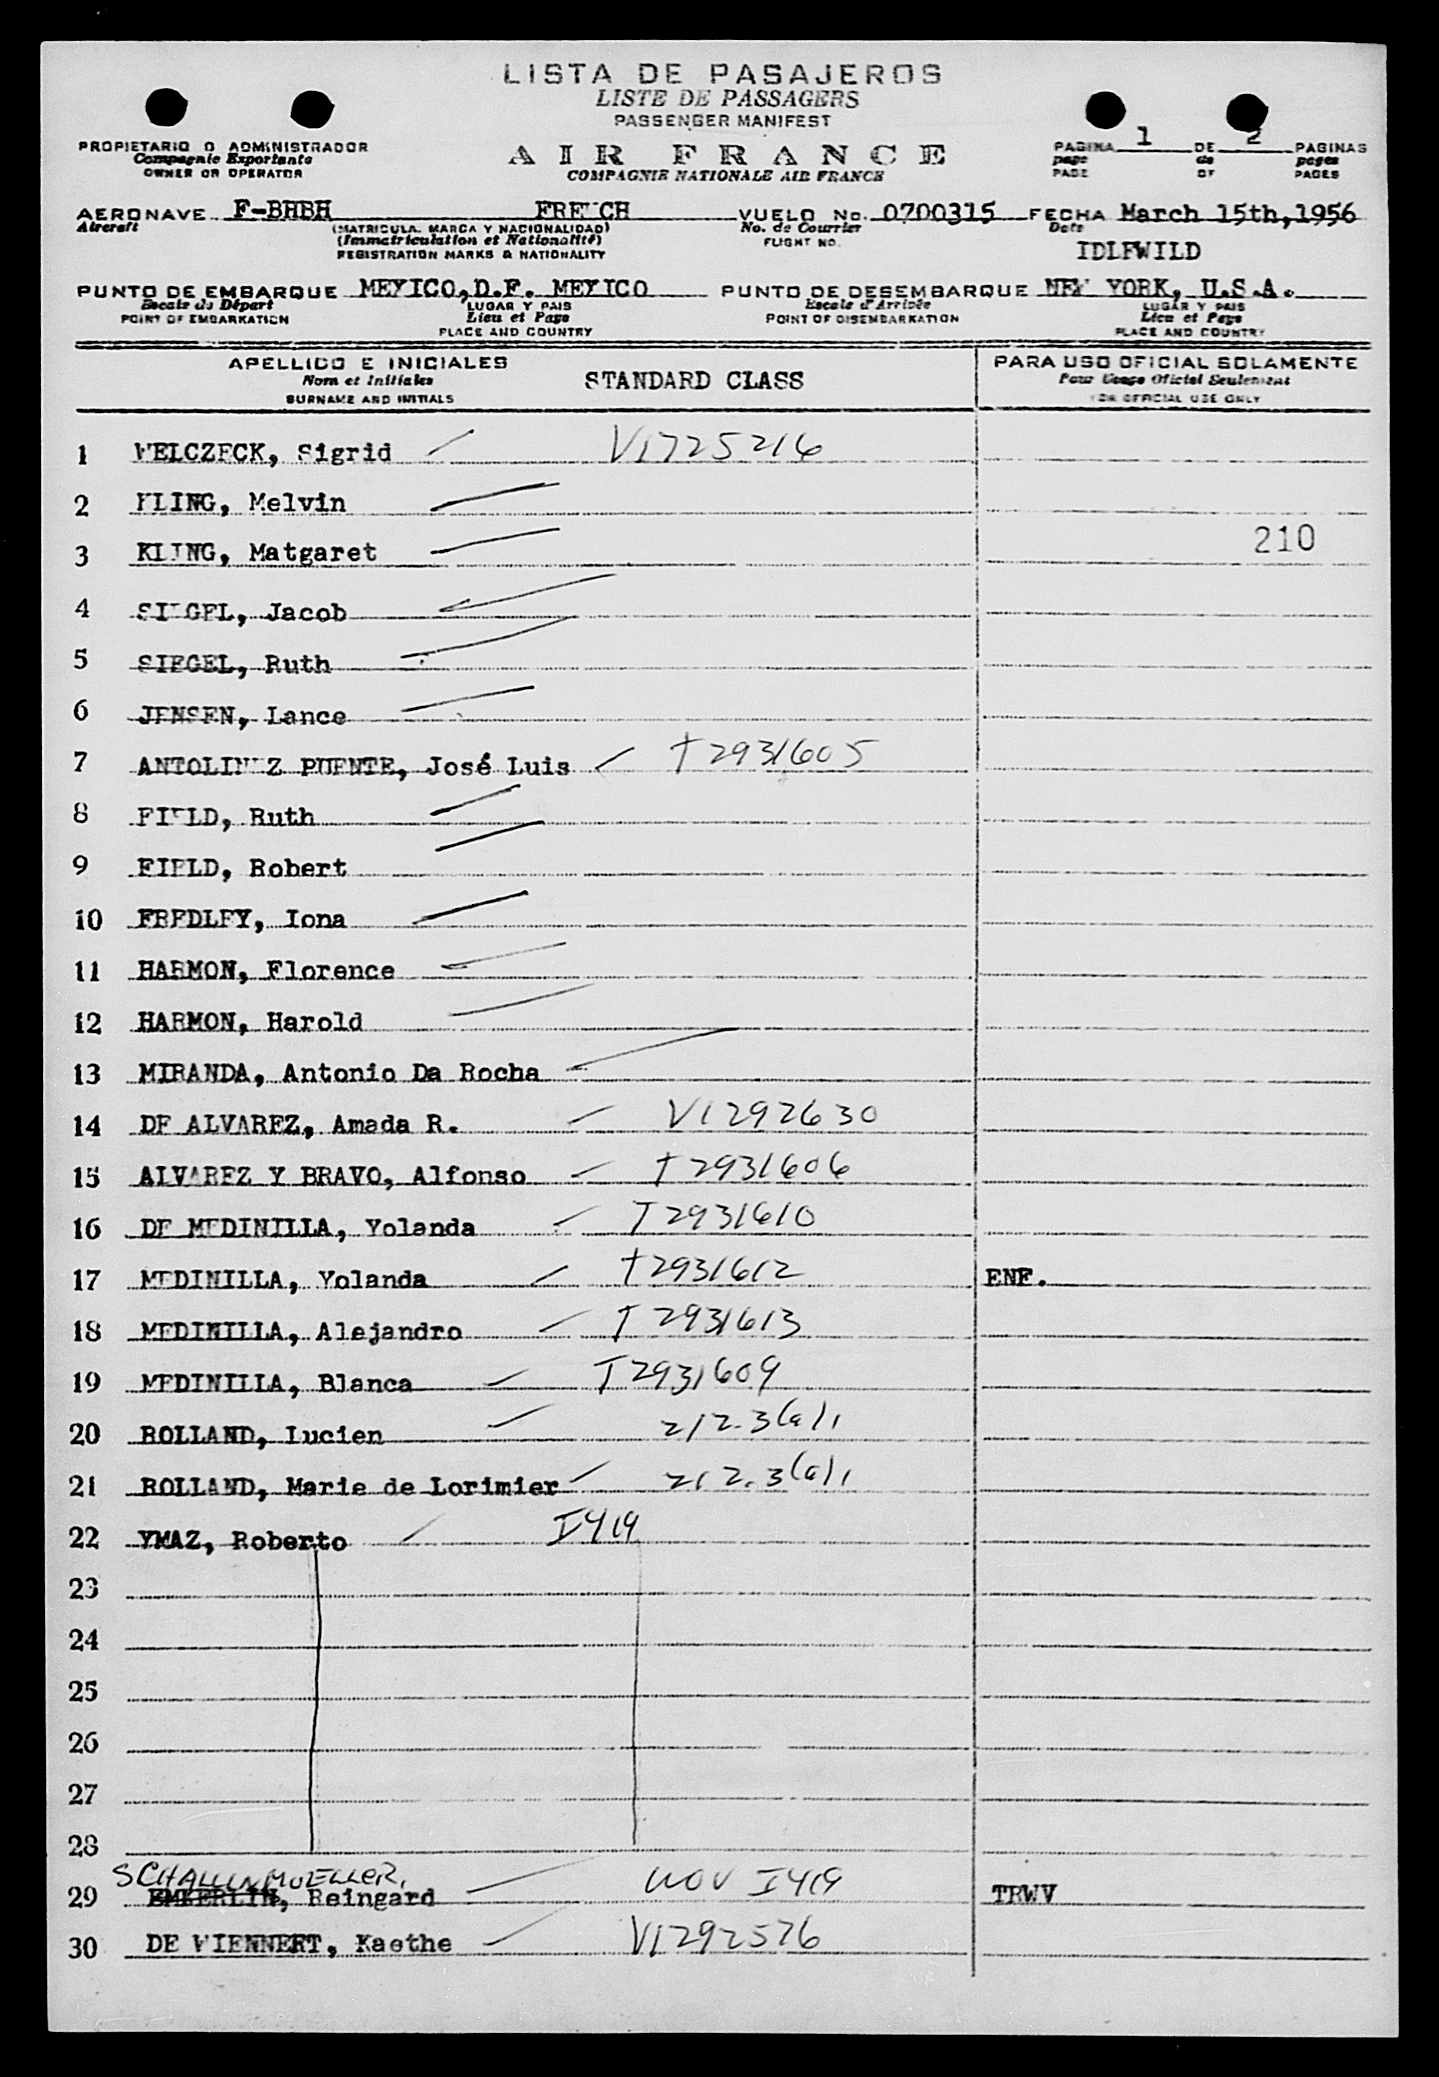 LISTA DE PASAJEROS
LISTE DE PASSAGERS
PASSENGER MANIFEST
PROPIETARIO O ADMINISTRADOR
Compagnie Exportante
OWNER OR OPERATOR
AIR FRANCE
COMPAGNIE NATIONALE AIR FRANCE
PAGINA 1 DE 2 PAGINAS
page de pages
PAGE OF PAGES
AERONAVE F-BHBH FRENCH VUELO No. 0700315 FECHA March 15th,1956
Aircraft (MATRICULA, MARCA Y NACIONALIDAD) No. de Courrier Date
(Immatriculation et Nationalité) FLIGHT NO.
REGISTRATION MARKS & NATIONALITY
IDLEWILD
PUNTO DE EMBARQUE MEXICO,D.F. MEXICO PUNTO DE DESEMBARQUE NEW YORK, U.S.A.
Escale de Départ LUGAR Y PAIS Escale d'Arrivée LUGAR Y PAIS
POINT OF EMBARKATION Lieu et Pays POINT OF DISEMBARKATION Lieu et Pays
PLACE AND COUNTRY PLACE AND COUNTRY
APELLIDO E INICIALES STANDARD CLASS PARA USO OFICIAL SOLAMENTE
Nom et Initiales Pour Usage Oficiel Seulement
SURNAME AND INITIALS FOR OFFICIAL USE ONLY
1 WELCZECK, Sigrid V1725216
2 KLING, Melvin
3 KLING, Matgaret 210
4 SIEGEL, Jacob
5 SIEGEL, Ruth
6 JENSEN, Lance
7 ANTOLINEZ PUENTE, José Luis T2931605
8 FIELD, Ruth
9 FIELD, Robert
10 FREDLEY, Iona
11 HARMON, Florence
12 HARMON, Harold
13 MIRANDA, Antonio Da Rocha
14 DE ALVAREZ, Amada R. V1292630
15 ALVAREZ Y BRAVO, Alfonso T2931606
16 DE MEDINILLA, Yolanda T2931610
17 MEDINILLA, Yolanda T2931612 ENF.
18 MEDINILLA, Alejandro T2931613
19 MEDINILLA, Blanca T2931609
20 ROLLAND, Lucien 212.3(a)1
21 ROLLAND, Marie de Lorimier 212.3(a)1
22 YMAZ, Roberto I419
23
24
25
26
27
28
SCHALLENMUELLER,
29 EMKERLIN, Reingard WOV I419 TRWV
30 DE WIENNERT, Kaethe V1292576